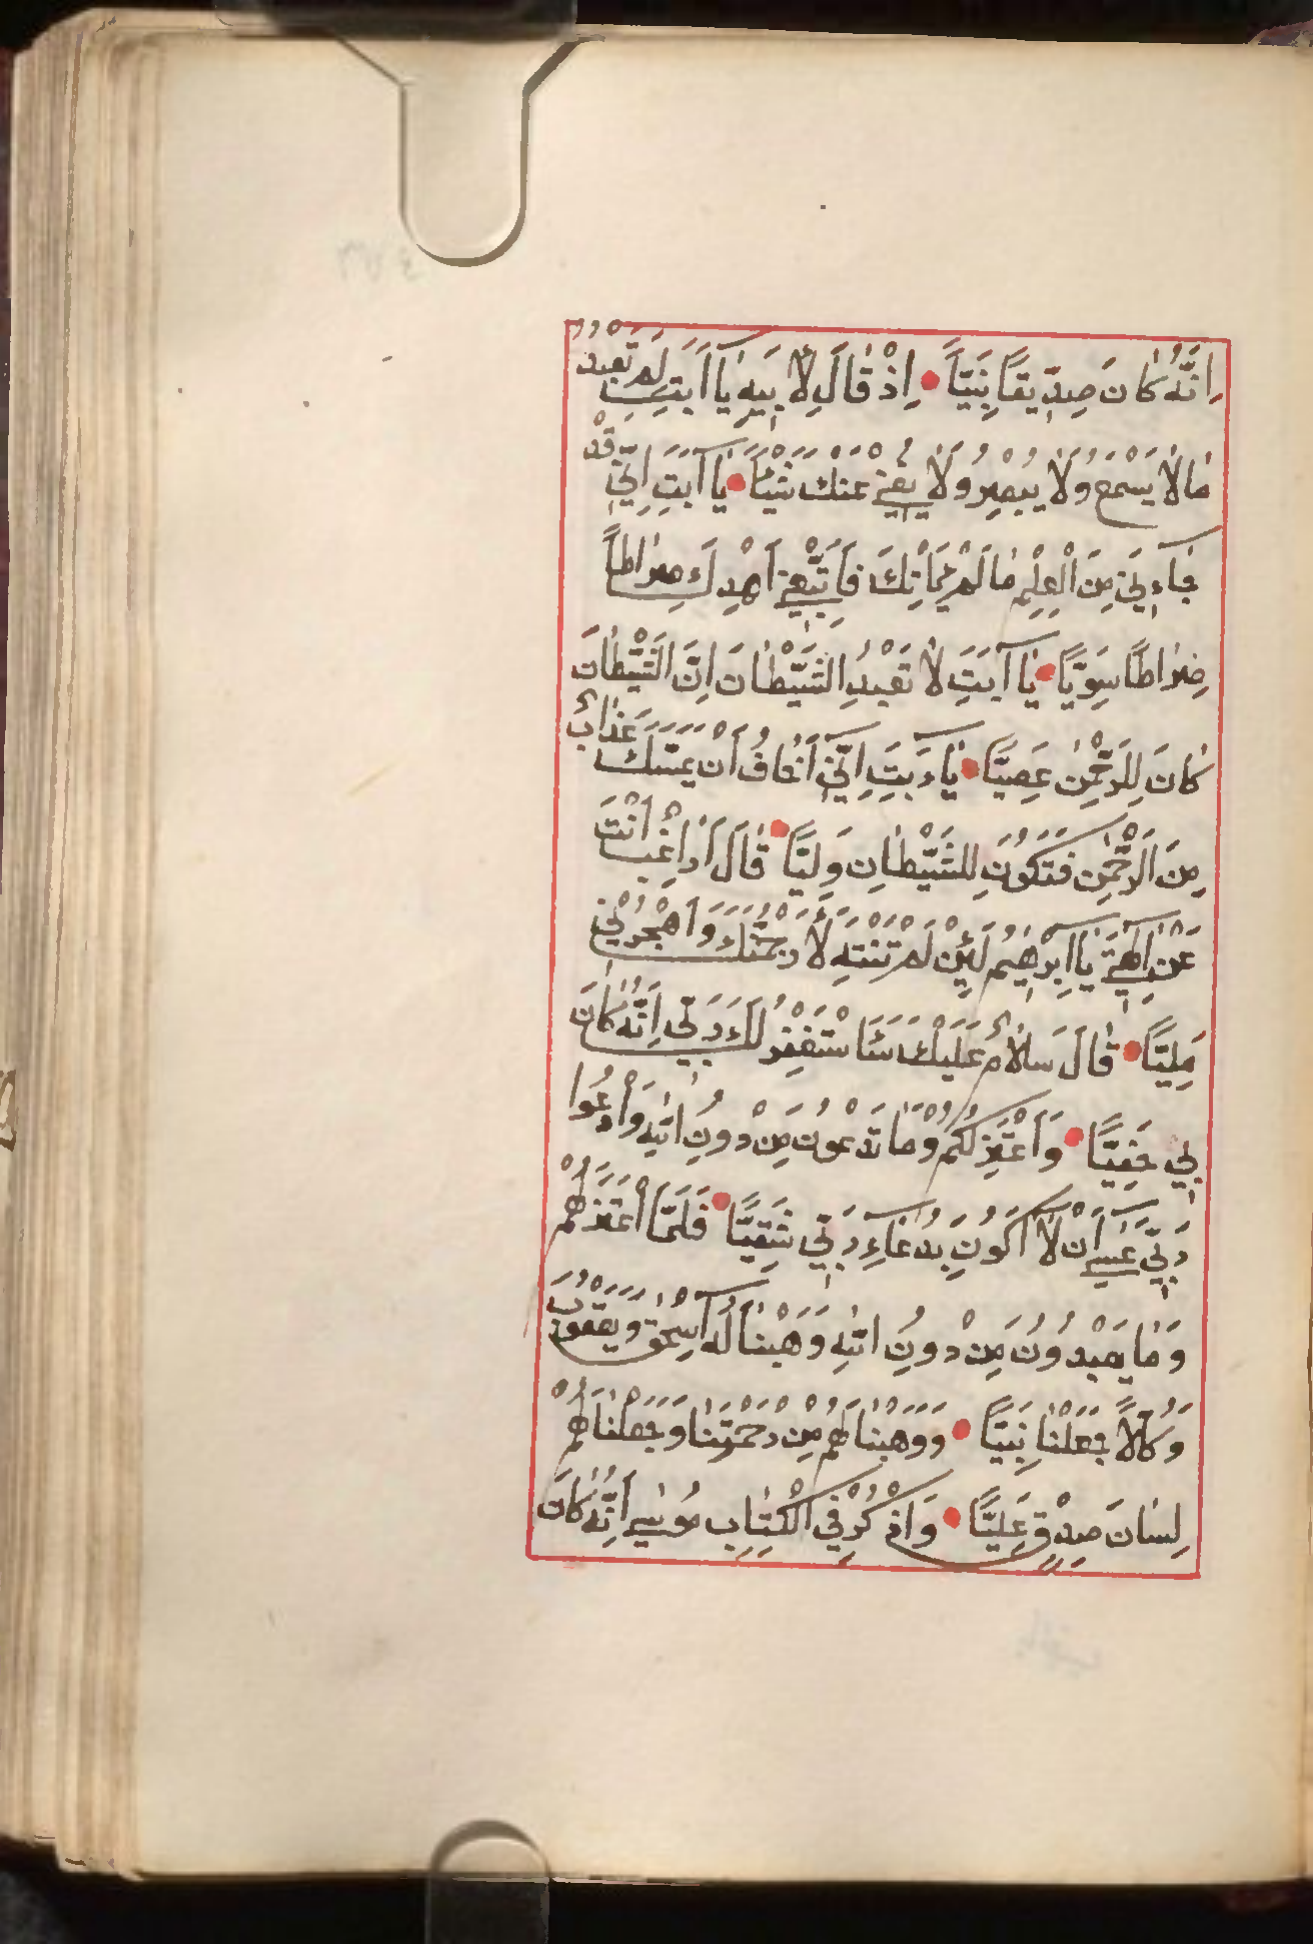 اِنَّهُ كَانَ صِدِّيقًا نَبِيًّا اِذْ قَالَ لِأَبِيهِ يَا اَبَتِ لِمَ تَعْبُدُ
مَا لَا يَسْمَعُ وَلَا يُبْصِرُ وَلَا يُغْنِي عَنْكَ شَيْئًا يَا اَبَتِ اِنِّي قَدْ
جَاءَنِي مِنَ الْعِلْمِ مَا لَمْ يَأْتِكَ فَاتَّبِعْنِي اَهْدِكَ صِرَاطًا
صِرَاطًا سَوِيًّا يَا اَبَتِ لَا تَعْبُدِ الشَّيْطَانَ اِنَّ الشَّيْطَانَ
كَانَ لِلرَّحْمٰنِ عَصِيًّا يَاءَبَتِ اِنِّي اَخَافُ اَنْ يَمَسَّكَ عَذَابٌ
مِنَ الرَّحْمٰنِ فَتَكُونَ لِلشَّيْطَانِ وَلِيًّا قَالَ اَرَاغِبٌ اَنْتَ
عَنْ اٰلِهَتِي يَا اِبْرٰهِيمُ لَئِنْ لَمْ تَنْتَهِ لَأَرْجُمَنَّكَ وَاهْجُرْنِي
مَلِيًّا قَالَ سَلَامٌ عَلَيْكَ سَاَسْتَغْفِرُ لَكَ رَبِّي اِنَّهُ كَانَ
بِي حَفِيًّا وَاَعْتَزِلُكُمْ وَمَا تَدْعُونَ مِنْ دُونِ اللهِ وَاَدْعُوا
رَبِّي عَسَى اَنْ لَا اَكُونَ بِدُعَاءِ رَبِّي شَقِيًّا فَلَمَّا اعْتَزَلَهُمْ
وَمَا يَعْبُدُونَ مِنْ دُونِ اللهِ وَهَبْنَا لَهُ اِسْحٰقَ وَيَعْقُوبَ
وَكُلًّا جَعَلْنَا نَبِيًّا وَوَهَبْنَا لَهُمْ مِنْ رَحْمَتِنَا وَجَعَلْنَا لَهُمْ
لِسَانَ صِدْقٍ عَلِيًّا وَاذْكُرْ فِي الْكِتَابِ مُوسَى اِنَّهُ كَانَ